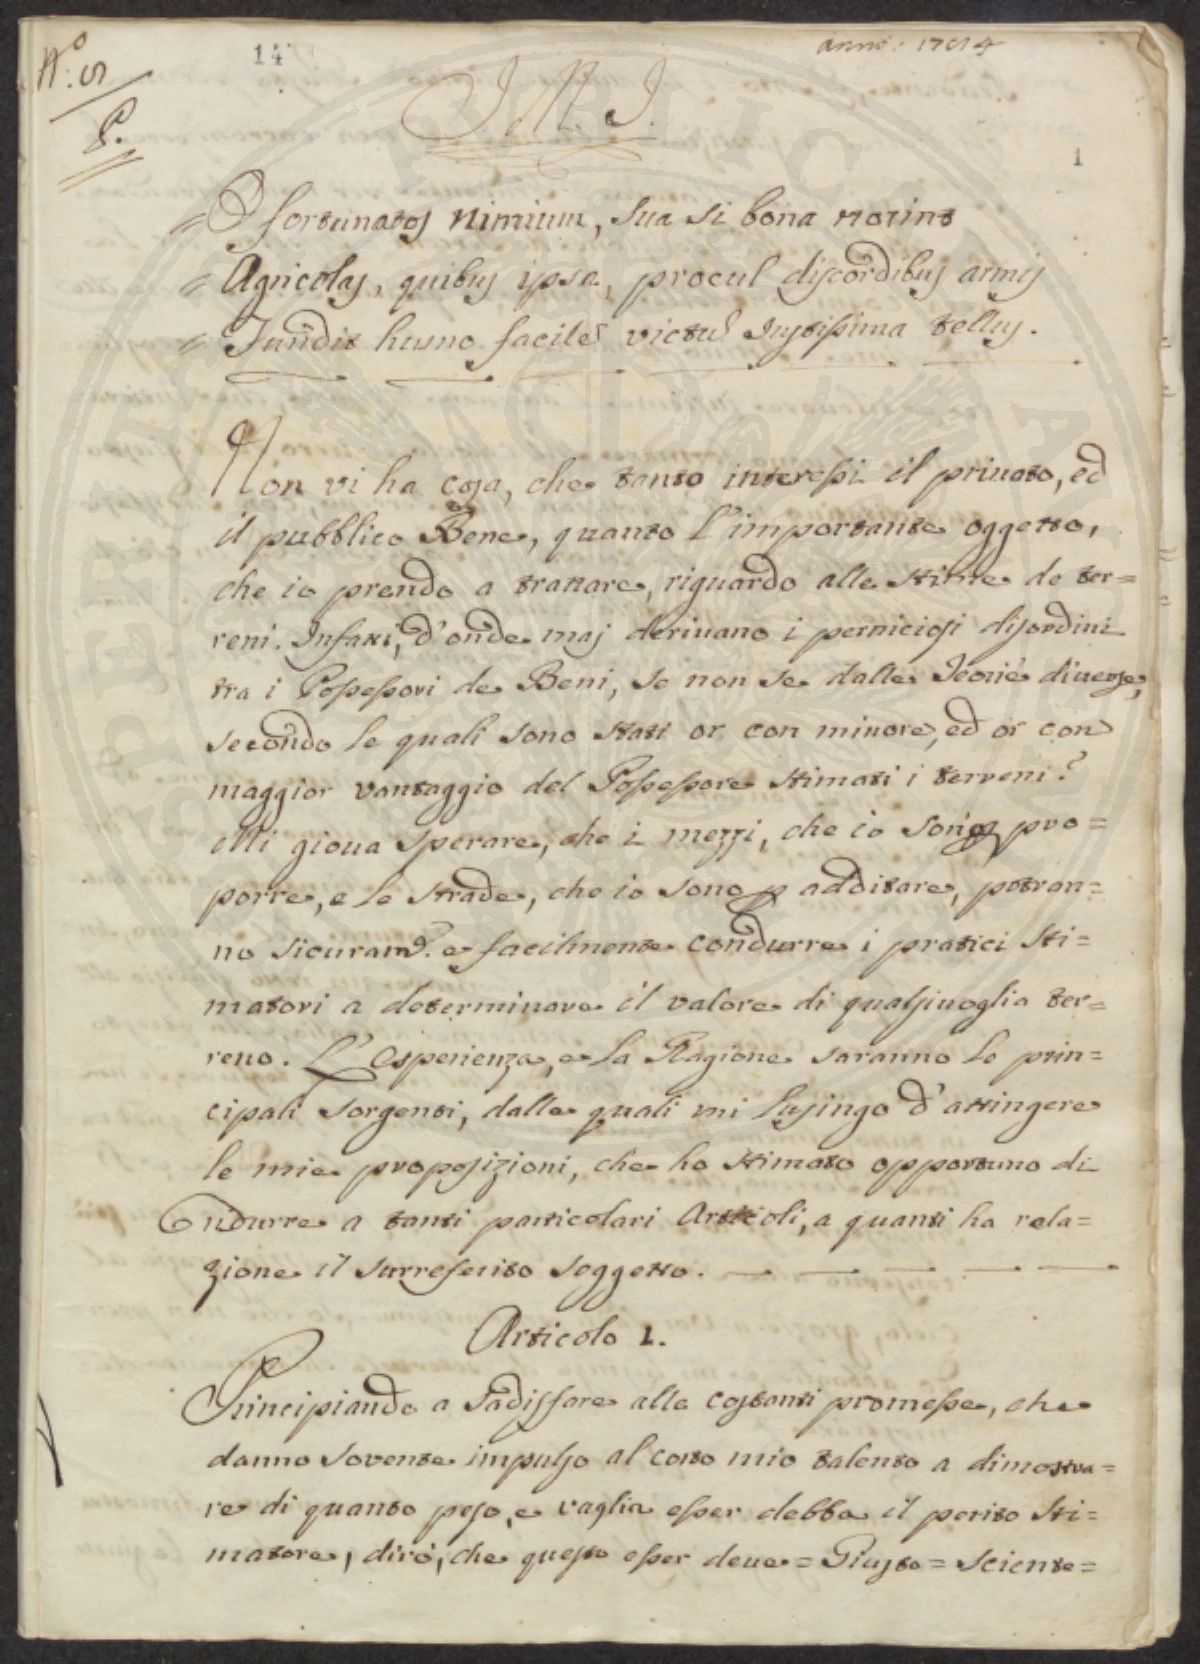 N.º 5
P.
14
anno: 1764
J. M. J.
1
= O fortunatos nimium, sua si bona norint
= Agricolas, quibus ipsa, procul discordibus armis
= Fundit humo facilem victum Justissima tellus.
Non vi ha cosa, che tanto interessi il privato, ed
il pubblico Bene, quanto l'importante oggetto,
che io prendo a trattare, riguardo alle stime de ter=
reni. Infatti, d'onde maj derivano i perniciosi disordini
tra i Possessori de Beni, se non se dalle Teorie diverse,
secondo le quali sono stati or con minore, ed or con
maggior vantaggio del Possessore stimati i terreni?
Mi giova sperare, che i mezzi, che io sono p pro=
porre, e le strade, che io sono p additare, potran=
no sicuram.e e facilmente condurre i pratici sti=
matori a determinare il valore di qualsivoglia ter=
reno. L'Esperienza, e la Ragione saranno le prin=
cipali sorgenti, dalle quali mi lusingo d'attingere
le mie proposizioni, che ho stimato opportuno di
ridurre a tanti particolari Articoli, a quanti ha rela=
zione il surreferito soggetto.
Articolo 1.
Principiando a sadisfare alle costanti promesse, che
danno sovente impulso al corto mio talento a dimostra=
re di quanto peso, e vaglia esser debba il perito sti=
matore, dirò, che questo esser deve = Giusto = Sciente=